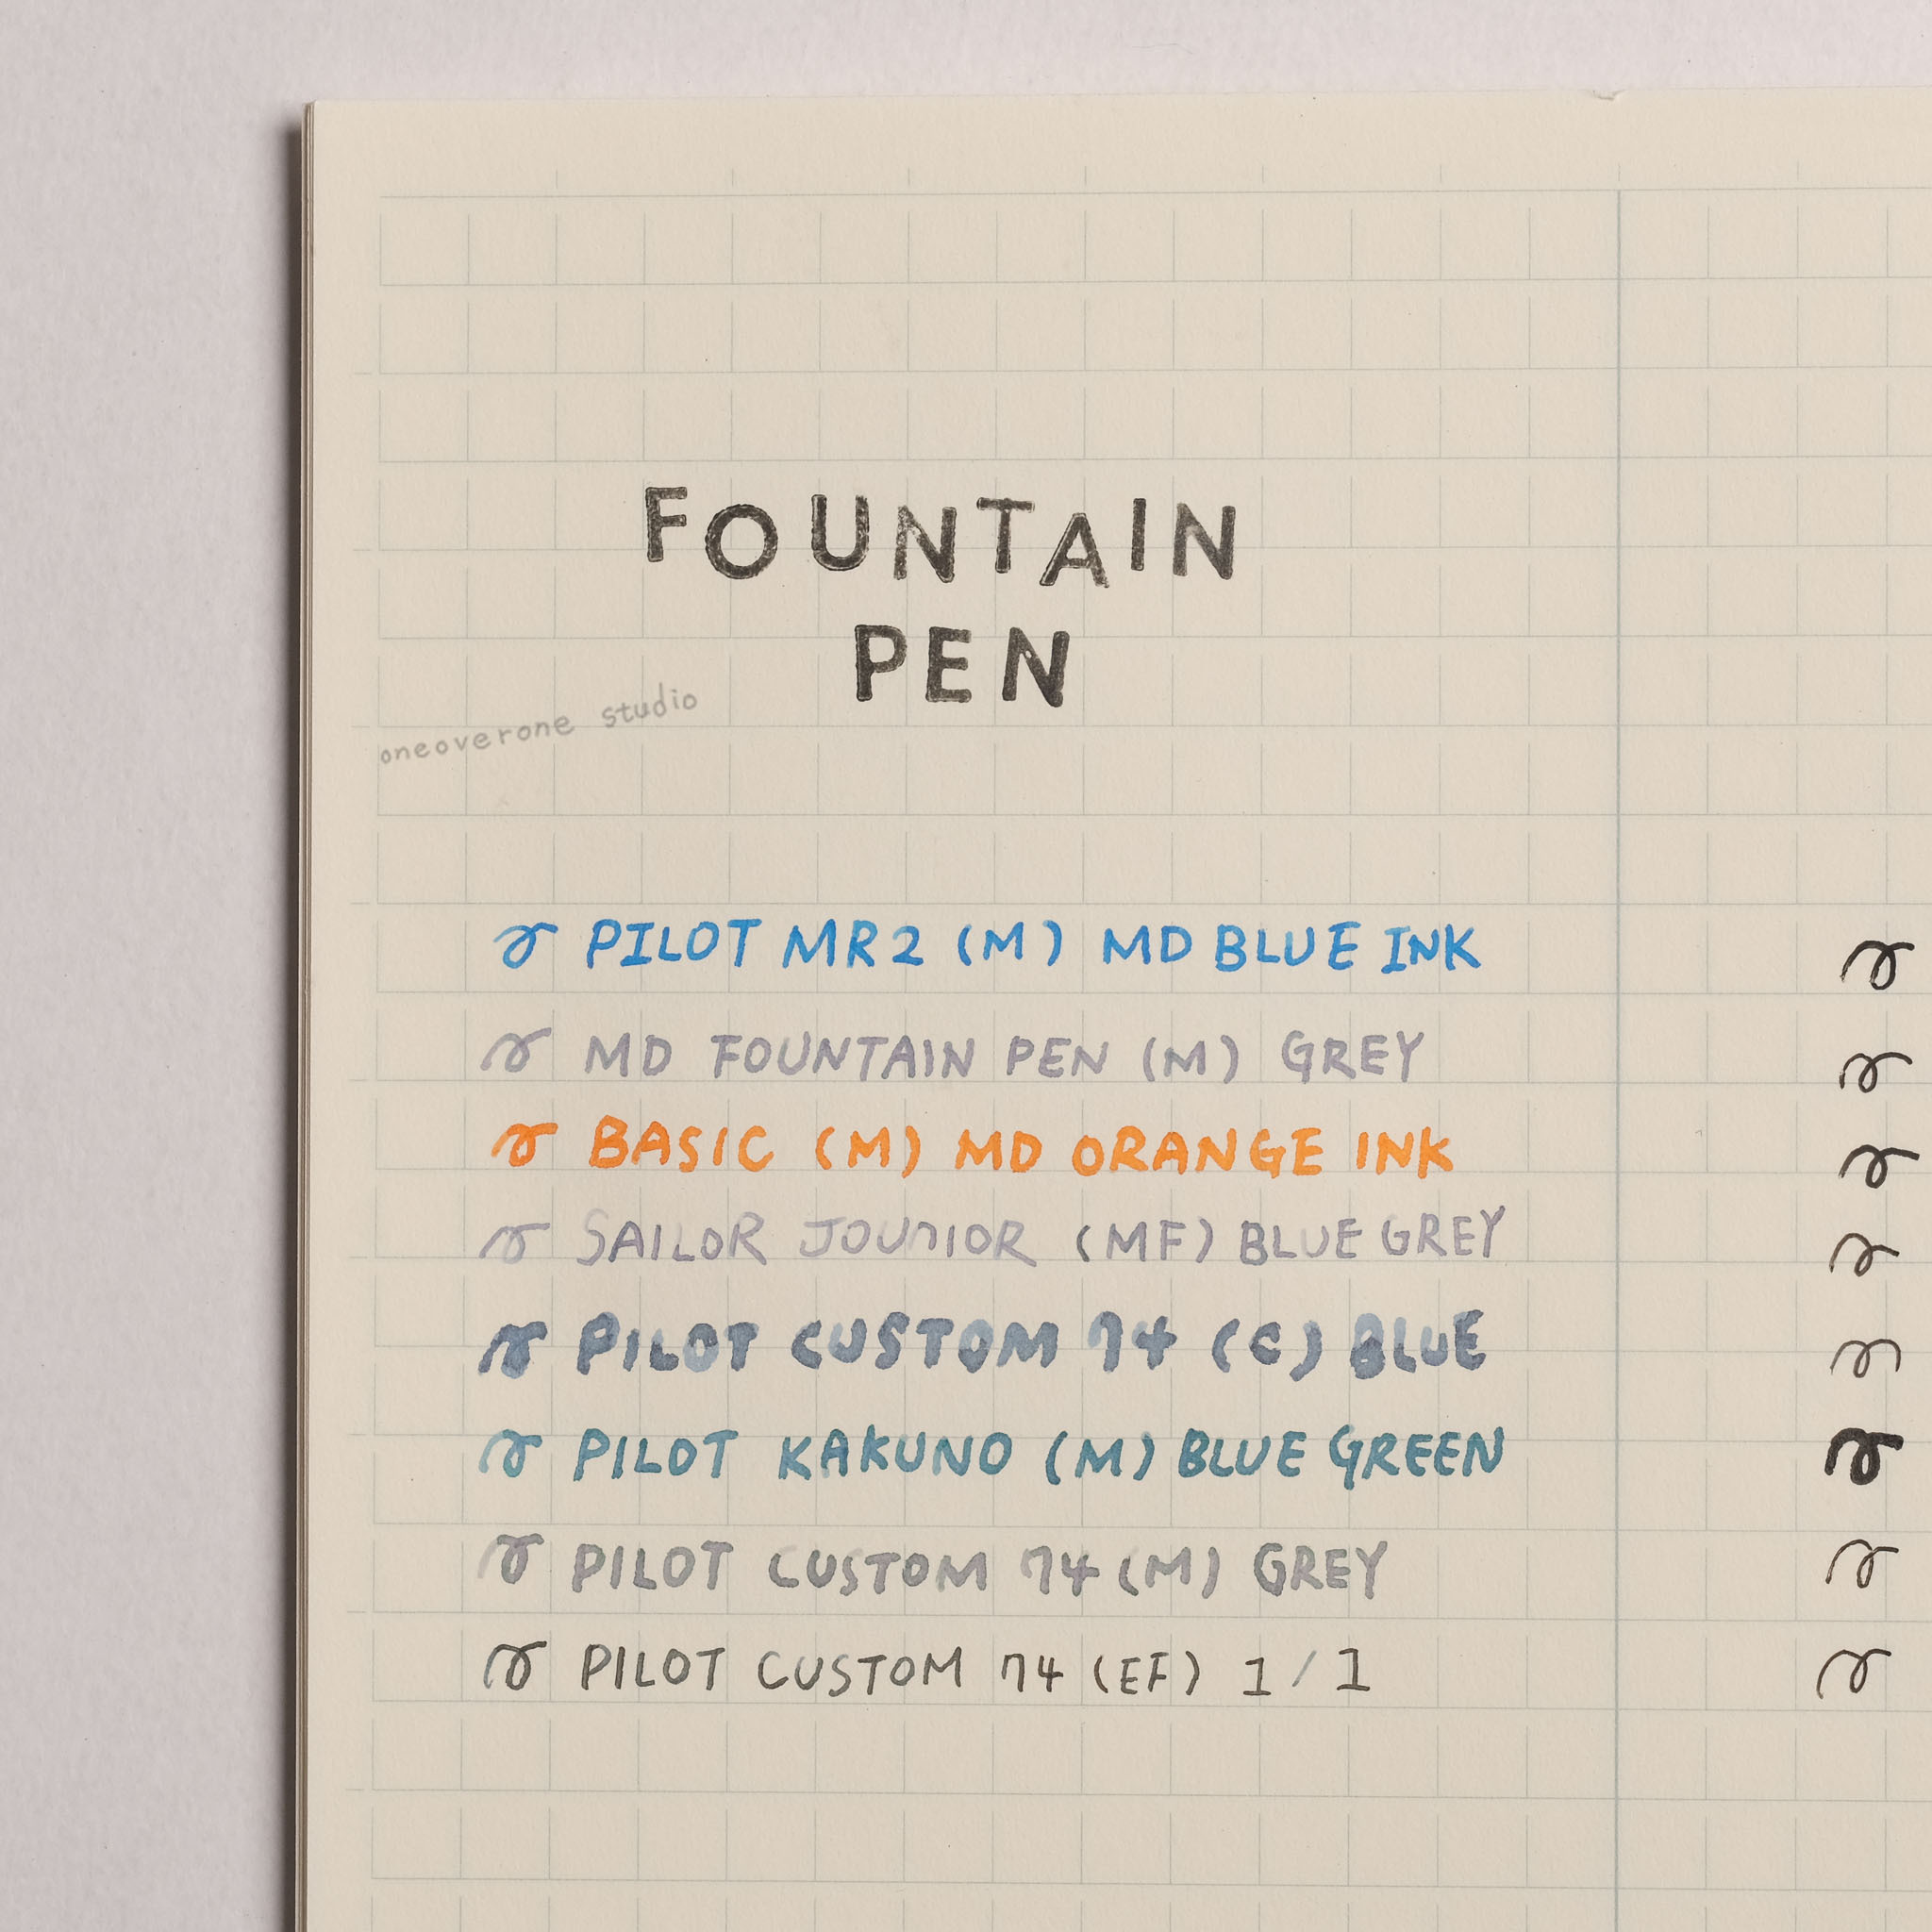 FOUNTAIN
PEN
oneoverone studio
PILOT MR2 (M) MD BLUE INK
MD FOUNTAIN PEN (M) GREY
BASIC (M) MD ORANGE INK
SAILOR JOUNIOR (MF) BLUE GREY
PILOT CUSTOM 74 (C) BLUE
PILOT KAKUNO (M) BLUE GREEN
PILOT CUSTOM 74 (M) GREY
PILOT CUSTOM 74 (EF) 1/1